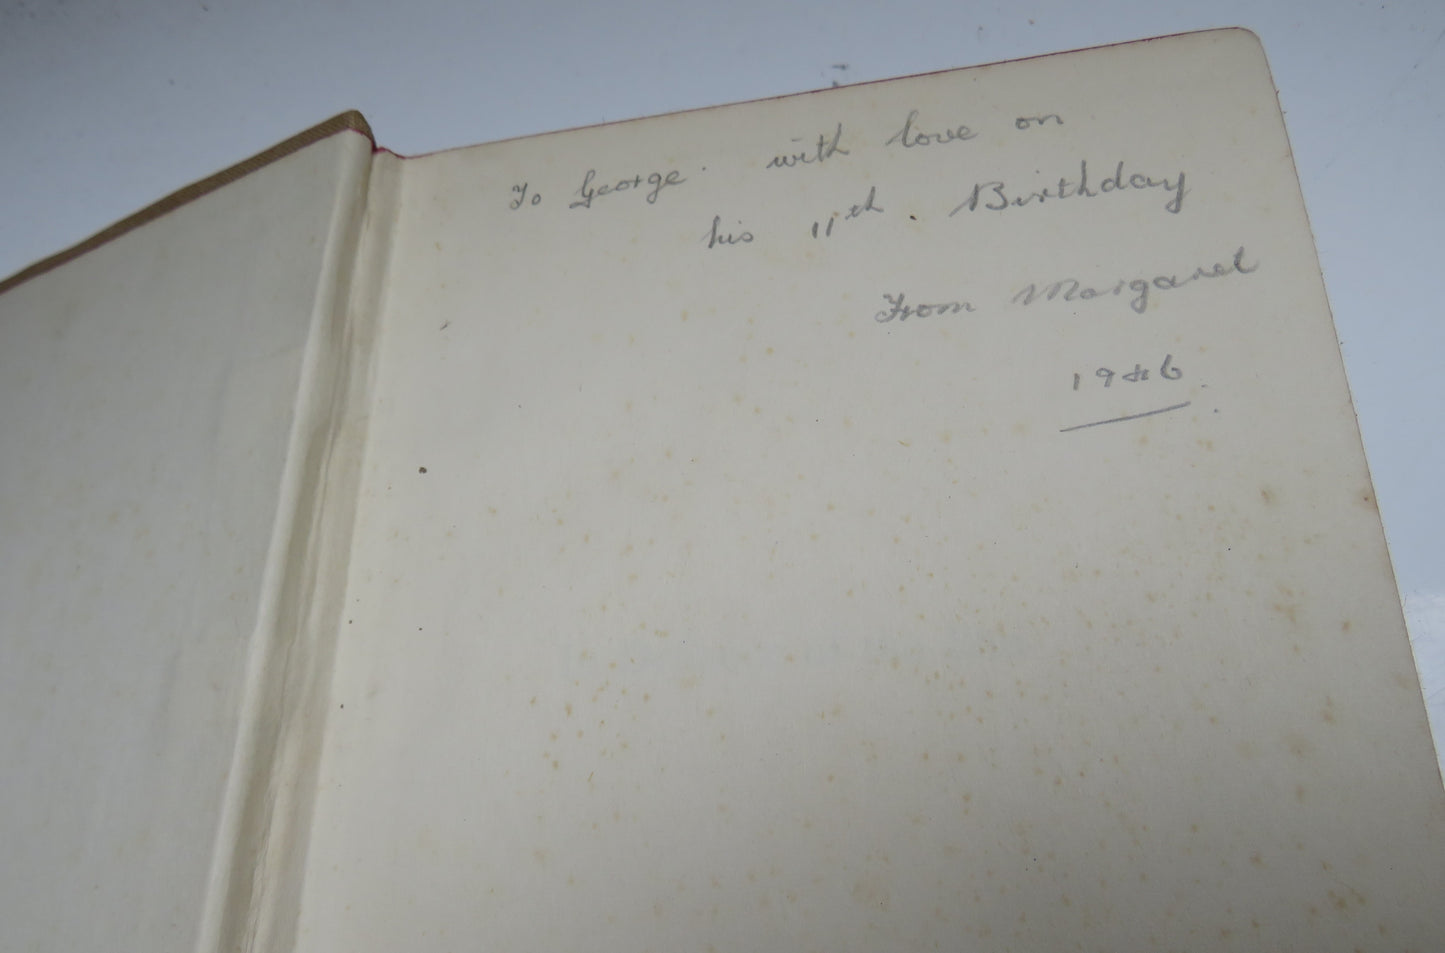 To George. with love on
his 11th. Birthday
From Margaret
1946.